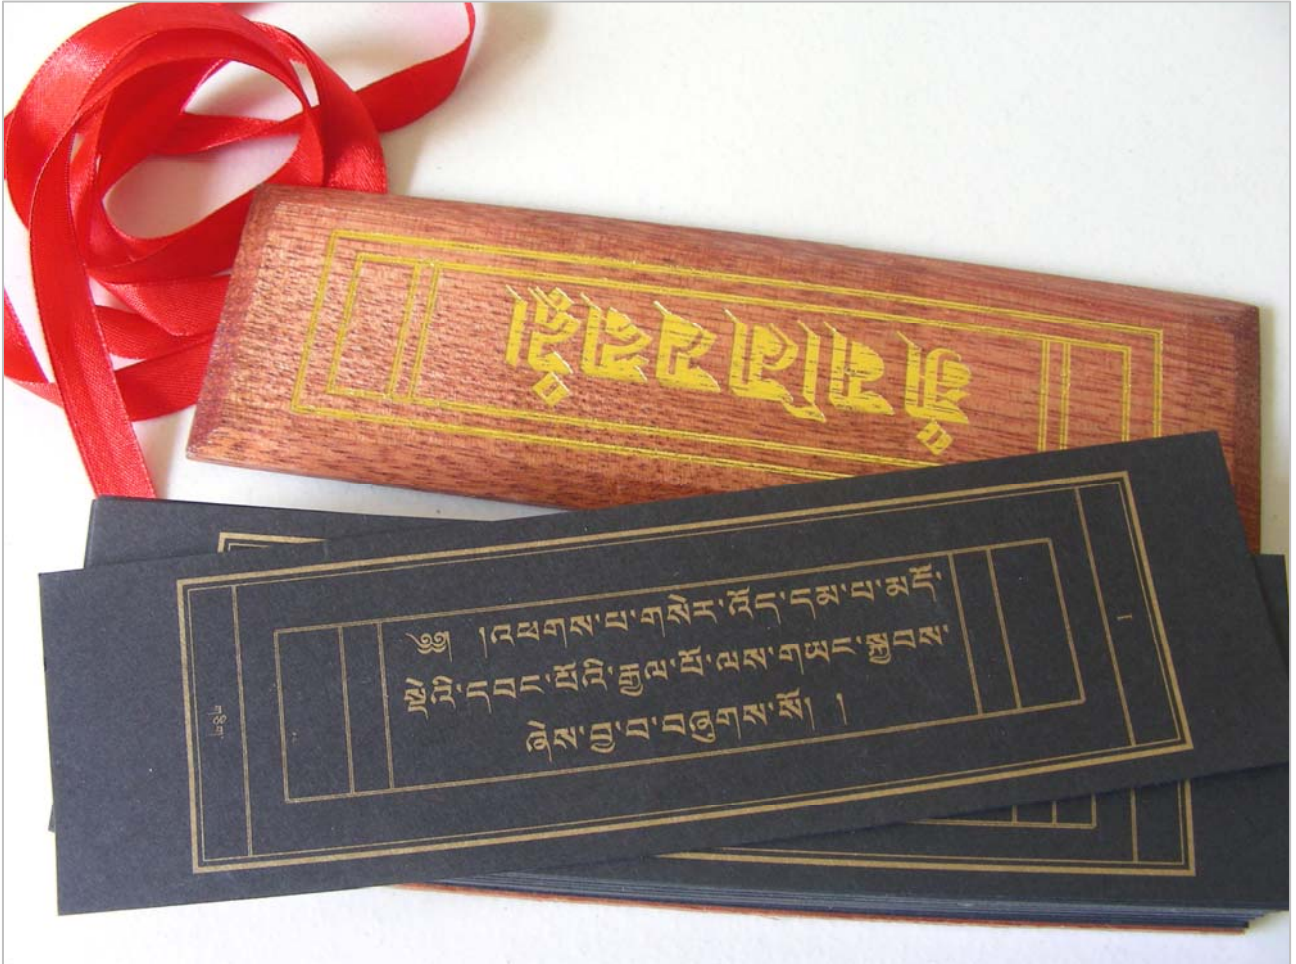 ༄༅། །འཕགས་པ་གསེར་འོད་དམ་པ་མདོ་
སྡེའི་དབང་པོའི་རྒྱལ་པོ་ལས་གཡང་སྐྱབས་
ཞེས་བྱ་བ་བཞུགས་སོ། །
གཅིག